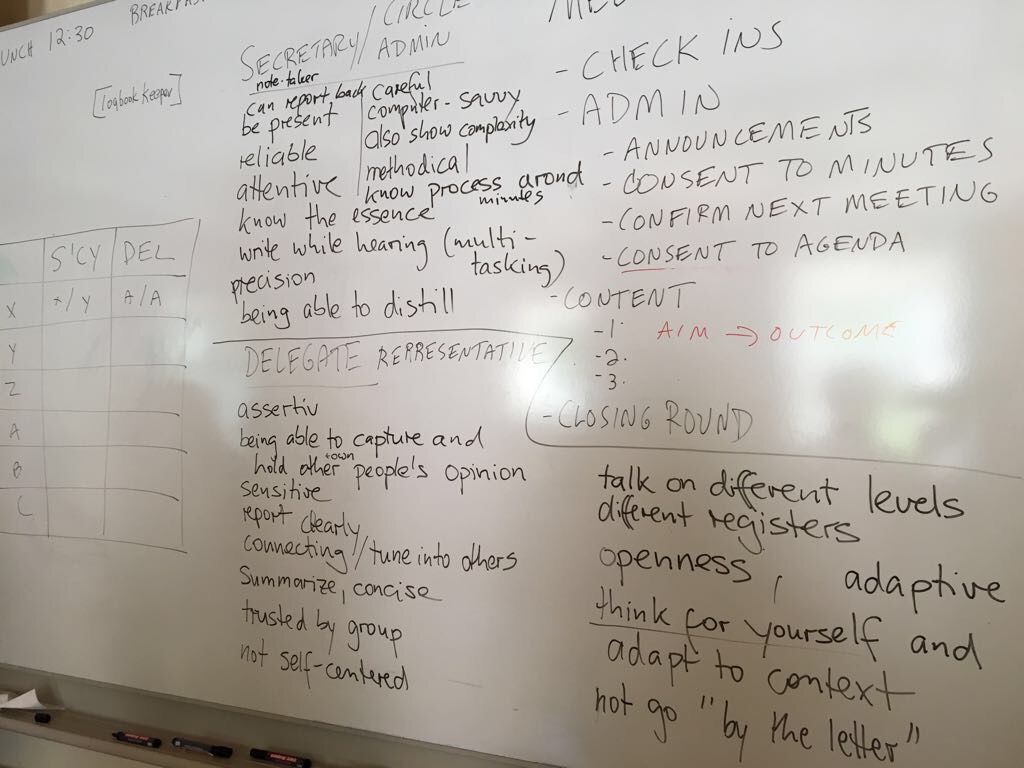 LUNCH 12:30
BREAKFAST
[logbook keeper]
S'CY DEL
X x/y A/A
Y
Z
A
B
C
SECRETARY/CIRCLE
ADMIN
note-taker
can report back
be present
reliable
attentive
know the essence
write while hearing (multi-
tasking)
precision
being able to distill
careful
computer-savvy
also show complexity
methodical
know process arond
minutes
DELEGATE REPRESENTATIVE
assertiv
being able to capture and
hold other people's opinion
+own
sensitive
report clearly
connecting//tune into others
Summarize, concise
trusted by group
not self-centered
- CHECK INS
- ADMIN
- ANNOUNCEMENTS
- CONSENT TO MINUTES
- CONFIRM NEXT MEETING
- CONSENT TO AGENDA
- CONTENT
- 1. AIM → OUTCOME
- 2.
- 3.
- CLOSING ROUND
talk on different levels
different registers
openness, adaptive
think for yourself and
adapt to context
not go "by the letter"